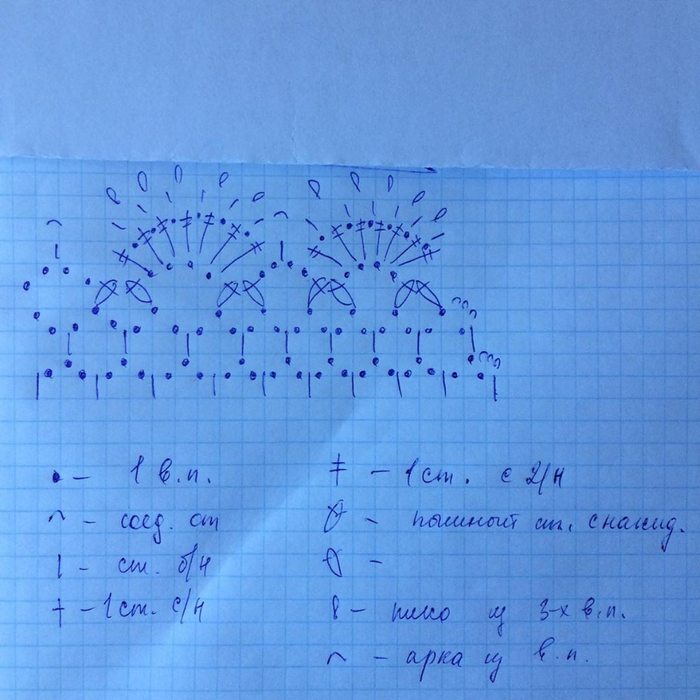 • – 1 в.п.
⌢ – соед. ст
| – ст. б/н
† – 1 ст. с/н
‡ – 1 ст. с 2/н
– пышный ст. с накид.
–
– пико из 3-х в.п.
⌢ – арка из в.п.